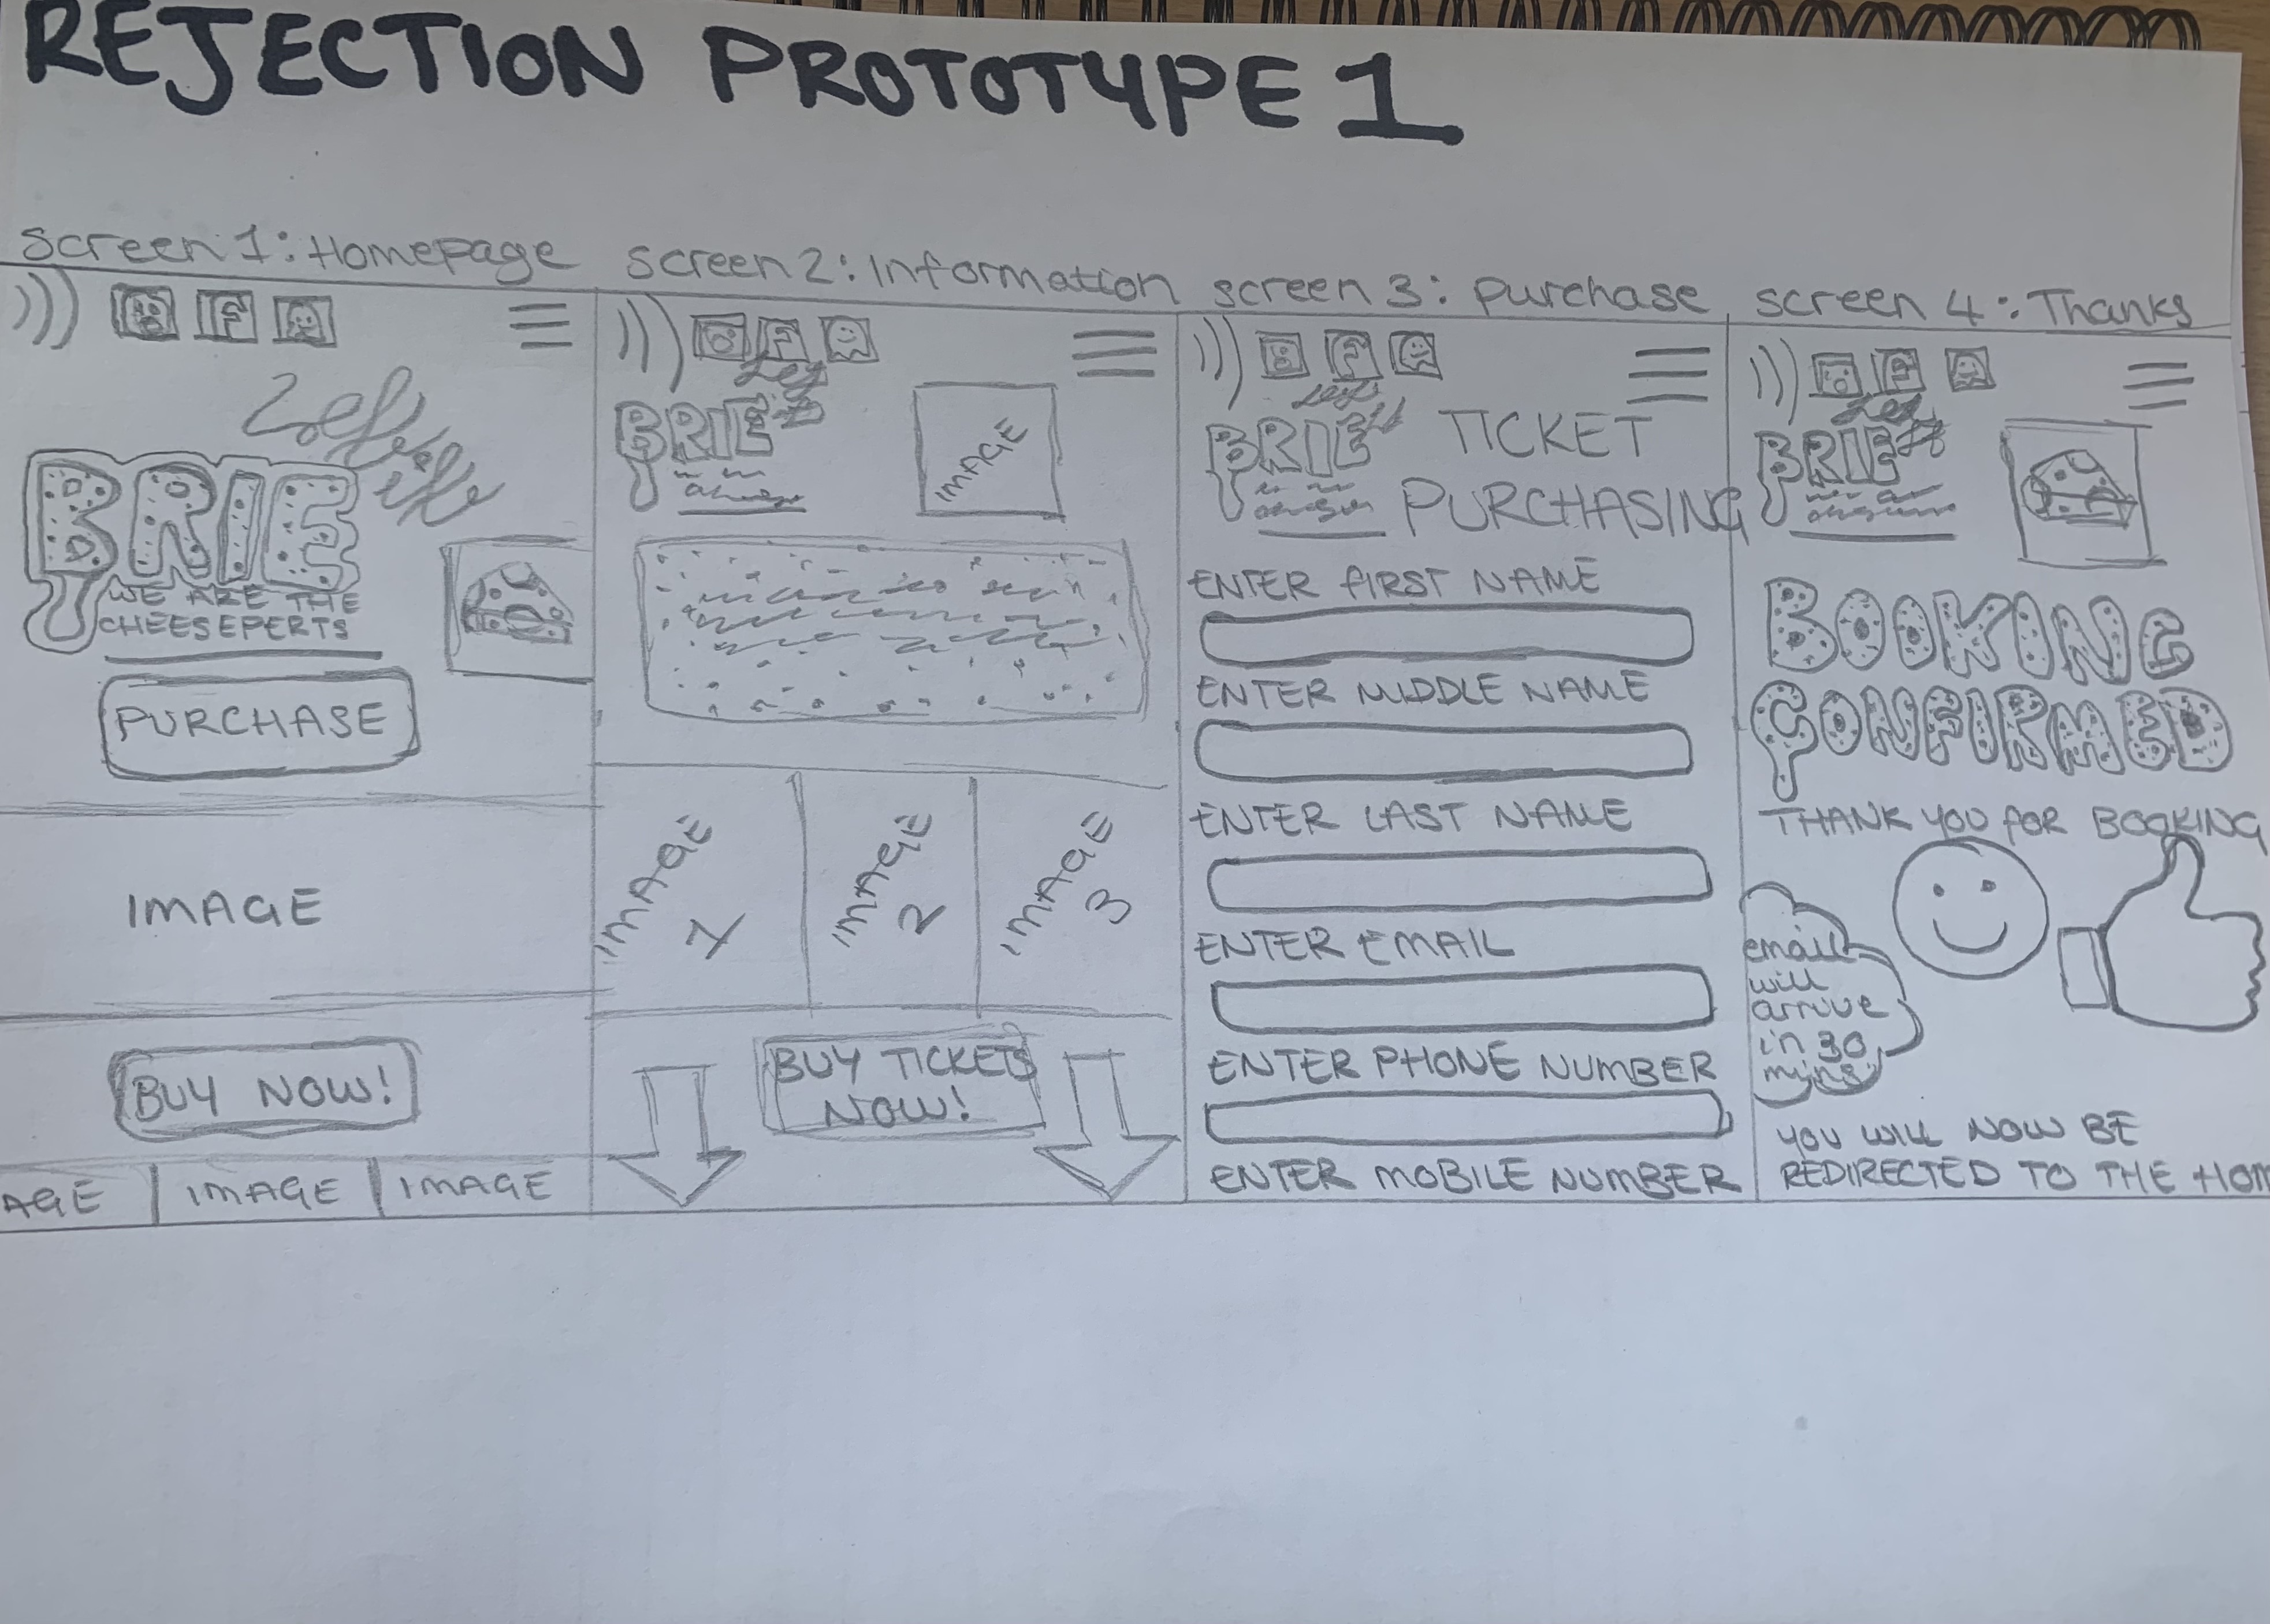 REJECTION PROTOTYPE 1
screen 1: Homepage
F
Let's
BRIE
WE ARE THE
CHEESEPERTS
PURCHASE
IMAGE
BUY NOW!
AGE IMAGE IMAGE
screen 2: Information
F
Let
BRIE
IMAGE
IMAGE 1
IMAGE 2
IMAGE 3
BUY TICKETS
NOW!
screen 3: purchase
F
BRIE
TICKET
PURCHASING
ENTER FIRST NAME
ENTER MIDDLE NAME
ENTER LAST NAME
ENTER EMAIL
ENTER PHONE NUMBER
ENTER MOBILE NUMBER
screen 4: Thanks
F
Let
BRIE
BOOKING
CONFIRMED
THANK YOU FOR BOOKING
email
will
arrive
in 30
mins
YOU WILL NOW BE
REDIRECTED TO THE HOM